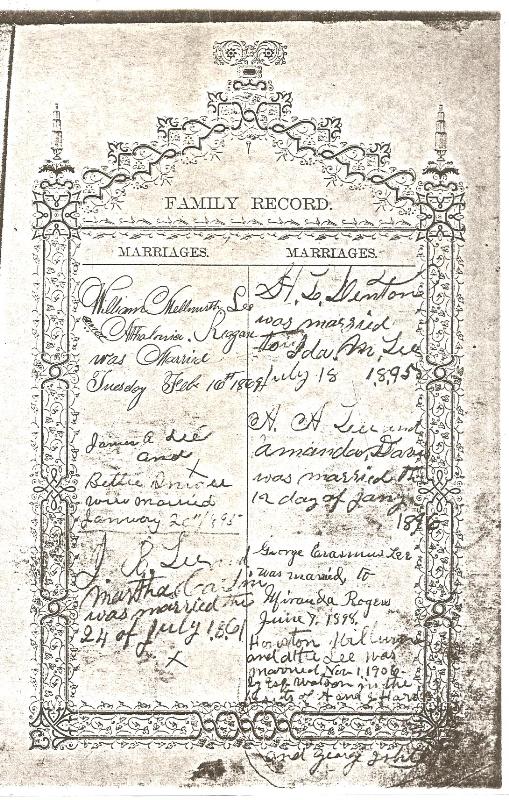 FAMILY RECORD.
MARRIAGES.
William Lee
and Reagan
was Married
Tuesday Feb 16th 1869
James A Lee
and
Bettie
were married
January 1895
J R Lee and
martha
was married the
24 of July 1861
x
MARRIAGES.
H. L. Denton
was married
to Ida M Lee
July 18 1895
H. H Lee and
Amanda Davis
was married the
12 day of Jany
1896
George Erasmus Lee
was married to
Miranda Rogers
June 9, 1898.
Houston
and Lee was
married Nov 1, 1906
by Esq Watson in the
of H and
and George